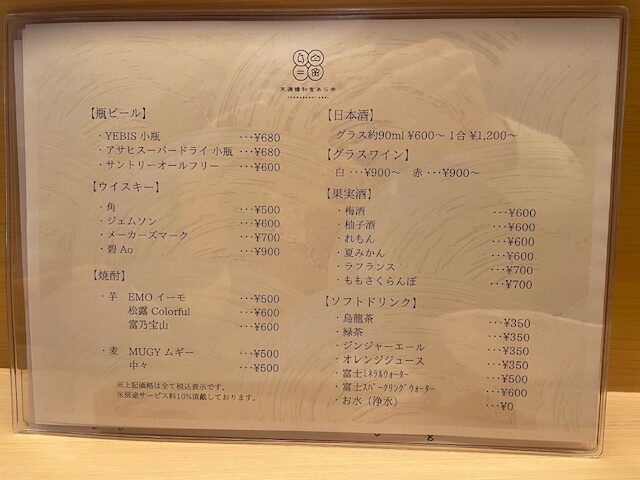 天満橋和食あら井
【瓶ビール】
・YEBIS 小瓶 ･･･¥680
・アサヒスーパードライ 小瓶 ･･･¥680
・サントリーオールフリー ･･･¥600
【ウイスキー】
・角 ･･･¥500
・ジェムソン ･･･¥600
・メーカーズマーク ･･･¥700
・碧 Ao ･･･¥900
【焼酎】
・芋 EMO イーモ ･･･¥500
松露 Colorful ･･･¥600
富乃宝山 ･･･¥600
・麦 MUGY ムギー ･･･¥500
中々 ･･･¥500
※上記価格は全て税込表示です。
※別途サービス料10%頂戴しております。
【日本酒】
グラス約90ml ¥600～ 1合 ¥1,200～
【グラスワイン】
白 ･･･¥900～ 赤 ･･･¥900～
【果実酒】
・梅酒 ･･･¥600
・柚子酒 ･･･¥600
・れもん ･･･¥600
・夏みかん ･･･¥600
・ラフランス ･･･¥700
・ももさくらんぼ ･･･¥700
【ソフトドリンク】
・烏龍茶 ･･･¥350
・緑茶 ･･･¥350
・ジンジャーエール ･･･¥350
・オレンジジュース ･･･¥350
・富士ﾐﾈﾗﾙｳｫｰﾀｰ ･･･¥500
・富士ｽﾊﾟｰｸﾘﾝｸﾞｳｫｰﾀｰ ･･･¥600
・お水（浄水） ･･･¥0